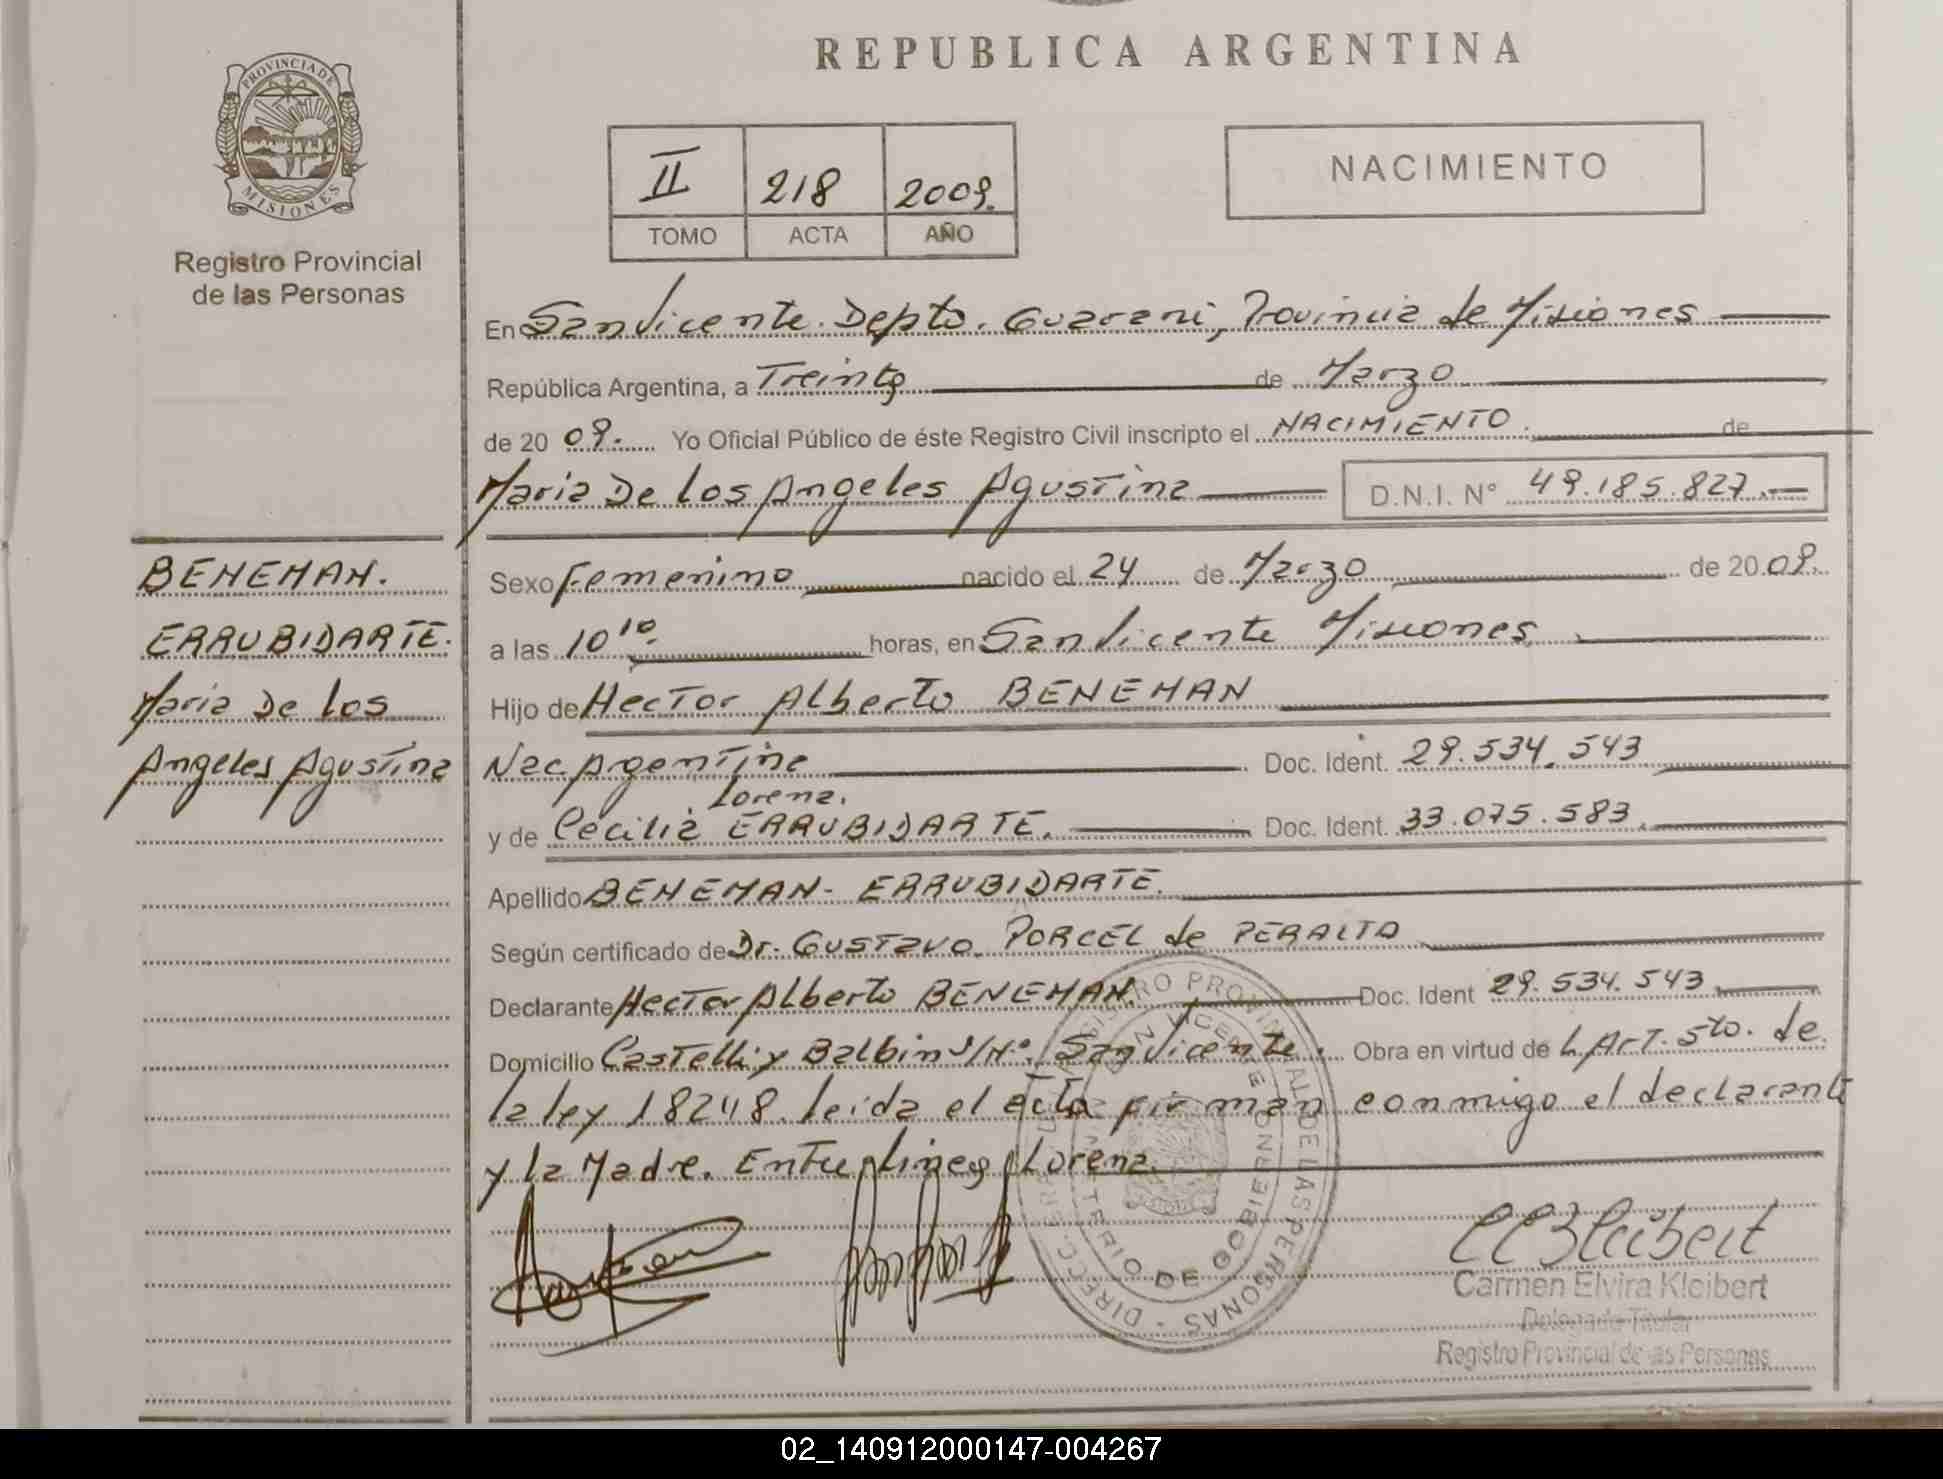 REPUBLICA ARGENTINA
PROVINCIA DE
MISIONES
Registro Provincial
de las Personas
II 218 2009.
TOMO ACTA AÑO
NACIMIENTO
En San Vicente. Depto. Guarani, Provincia de Misiones
República Argentina, a Treinta de Marzo
de 20 09. Yo Oficial Público de éste Registro Civil inscripto el NACIMIENTO. de
Maria De Los Angeles Agustina D.N.I. Nº 49.185.827.
BENEMAN.
ERRUBIDARTE.
Maria De Los
Angeles Agustina
Sexo Femenino nacido el 24 de Marzo de 20 09.
a las 10 10. horas, en San Vicente Misiones
Hijo de Hector Alberto BENEMAN
Nac Argentina Doc. Ident. 29.534.543
Lorena.
y de Cecilia ERRUBIDARTE. Doc. Ident. 33.075.583.
Apellido BENEMAN- ERRUBIDARTE.
Según certificado de Dr. Gustavo PORCEL de PERALTA
Declarante Hector Alberto BENEMAN. Doc. Ident 29.534.543
Domicilio Castelli y Balbin S/Nº. San Vicente. Obra en virtud de L Art. 5to. de
la ley 18248. leida el acta firman conmigo el declarante
y la Madre. Entre lineas Lorena.
SAN VICENTE
MINISTERIO DE GOBIERNO
Carmen Elvira Kleibert
Delegada Titular
Registro Provincial de las Personas
02_140912000147-004267